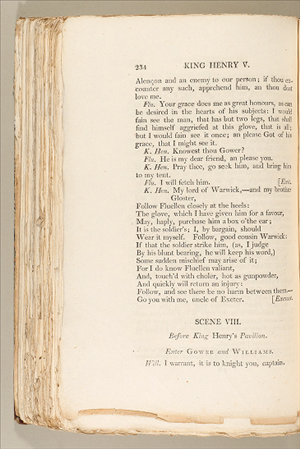 234 KING HENRY V.
Alençon and an enemy to our person; if thou en-
counter any such, apprehend him, an thou dost
love me.
Flu. Your grace does me as great honours, as can
be desired in the hearts of his subjects: I would
fain see the man, that has but two legs, that shall
find himself aggriefed at this glove, that is all;
but I would fain see it once; an please Got of his
grace, that I might see it.
K. Hen. Knowest thou Gower?
Flu. He is my dear friend, an please you.
K. Hen. Pray thee, go seek him, and bring him
to my tent.
Flu. I will fetch him. [Exit.
K. Hen. My lord of Warwick,—and my brother
Gloster,
Follow Fluellen closely at the heels:
The glove, which I have given him for a favour,
May, haply, purchase him a box o'the ear;
It is the soldier's; I, by bargain, should
Wear it myself. Follow, good cousin Warwick:
If that the soldier strike him, (as, I judge
By his blunt bearing, he will keep his word,)
Some sudden mischief may arise of it;
For I do know Fluellen valiant,
And, touch'd with choler, hot as gunpowder,
And quickly will return an injury:
Follow, and see there be no harm between them.—
Go you with me, uncle of Exeter. [Exeunt.
SCENE VIII.
Before King Henry's Pavilion.
Enter GOWER and WILLIAMS.
Will. I warrant, it is to knight you, captain.